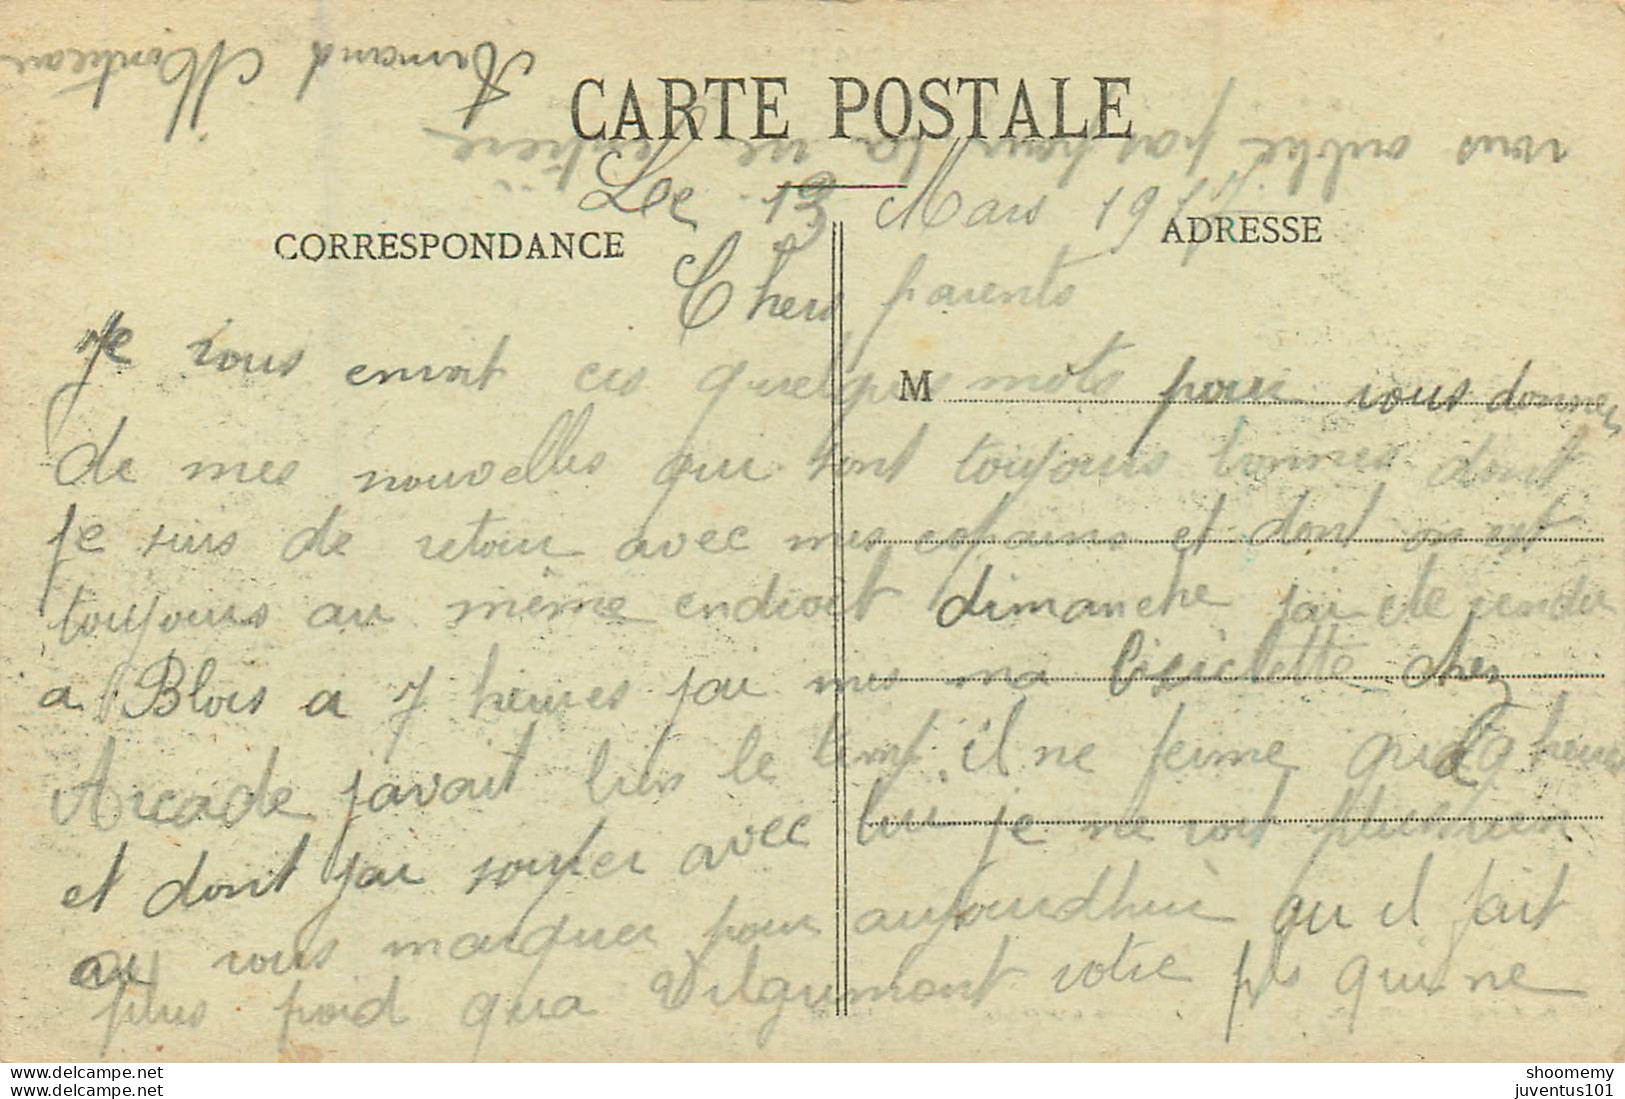 CARTE POSTALE
Le 13 Mars 1917
CORRESPONDANCE
ADRESSE
Chers parents
M
Je vous envoit ces quelques mots pour vous donner
de mes nouvelles qui sont toujours bonnes dont
je suis de retour avec mes copains et dont on est
toujours au même endroit dimanche jai ete rendu
a Blois a 7 heures jai mes ma bisiclette chez
Arcade javait bien le temp il ne ferme qua 9 heures
et dont jai souper avec lui je ne voit plus rien
au vous marquer pour aujourdhui qu il fait
plus froid qua Vilgrumont votre fils qui ne
vous oublie pas pour la vie entière
Armand
shoomemy
juventus101